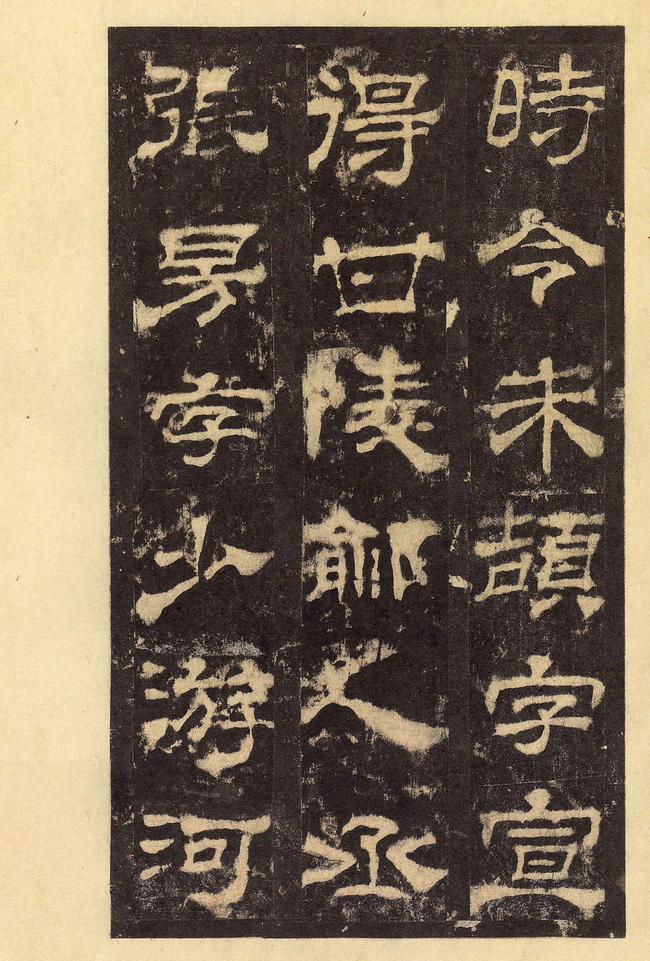 時令朱頡字宣
得甘陵鄃人丞
張昉字少游河